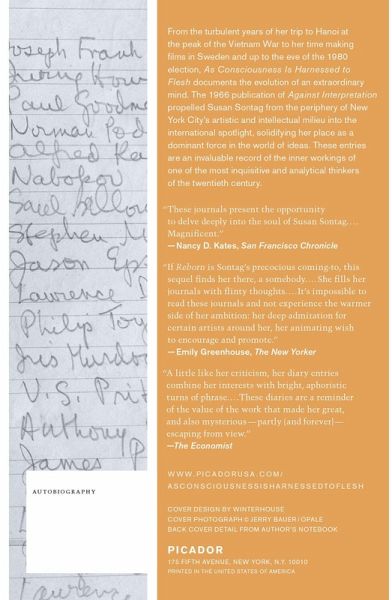 Joseph Frank
Irving How
Paul Goodm
Norman Pod
Alfred Ka
Nabokov
Saul Bellow
Stephen
Jason Ep
Lawrence
Philip Toy
Iris Murdo
V.S. Prit
Anthony
James P
AUTOBIOGRAPHY
From the turbulent years of her trip to Hanoi at
the peak of the Vietnam War to her time making
films in Sweden and up to the eve of the 1980
election, As Consciousness Is Harnessed to
Flesh documents the evolution of an extraordinary
mind. The 1966 publication of Against Interpretation
propelled Susan Sontag from the periphery of New
York City's artistic and intellectual milieu into the
international spotlight, solidifying her place as a
dominant force in the world of ideas. These entries
are an invaluable record of the inner workings of
one of the most inquisitive and analytical thinkers
of the twentieth century.
“These journals present the opportunity
to delve deeply into the soul of Susan Sontag....
Magnificent.”
—Nancy D. Kates, San Francisco Chronicle
“If Reborn is Sontag's precocious coming-to, this
sequel finds her there, a somebody....She fills her
journals with flinty thoughts....It's impossible to
read these journals and not experience the warmer
side of her ambition: her deep admiration for
certain artists around her, her animating wish
to encourage and promote.”
—Emily Greenhouse, The New Yorker
“A little like her criticism, her diary entries
combine her interests with bright, aphoristic
turns of phrase....These diaries are a reminder
of the value of the work that made her great,
and also mysterious—partly [and forever]—
escaping from view.”
—The Economist
WWW.PICADORUSA.COM/
ASCONSCIOUSNESSISHARNESSEDTOFLESH
COVER DESIGN BY WINTERHOUSE
COVER PHOTOGRAPH © JERRY BAUER/OPALE
BACK COVER DETAIL FROM AUTHOR'S NOTEBOOK
PICADOR
175 FIFTH AVENUE, NEW YORK, N.Y. 10010
PRINTED IN THE UNITED STATES OF AMERICA